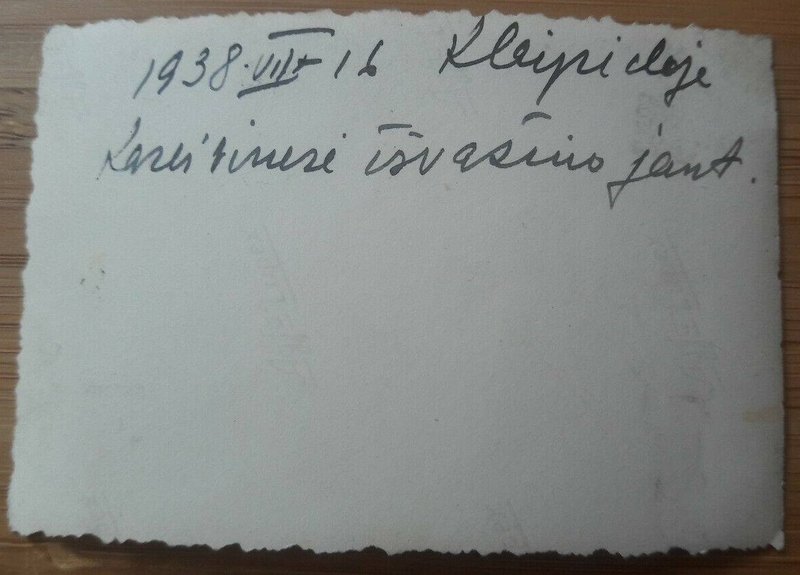 1938.VIII-16 Klaipėdoje
Kareivinėse išvažiuojant.